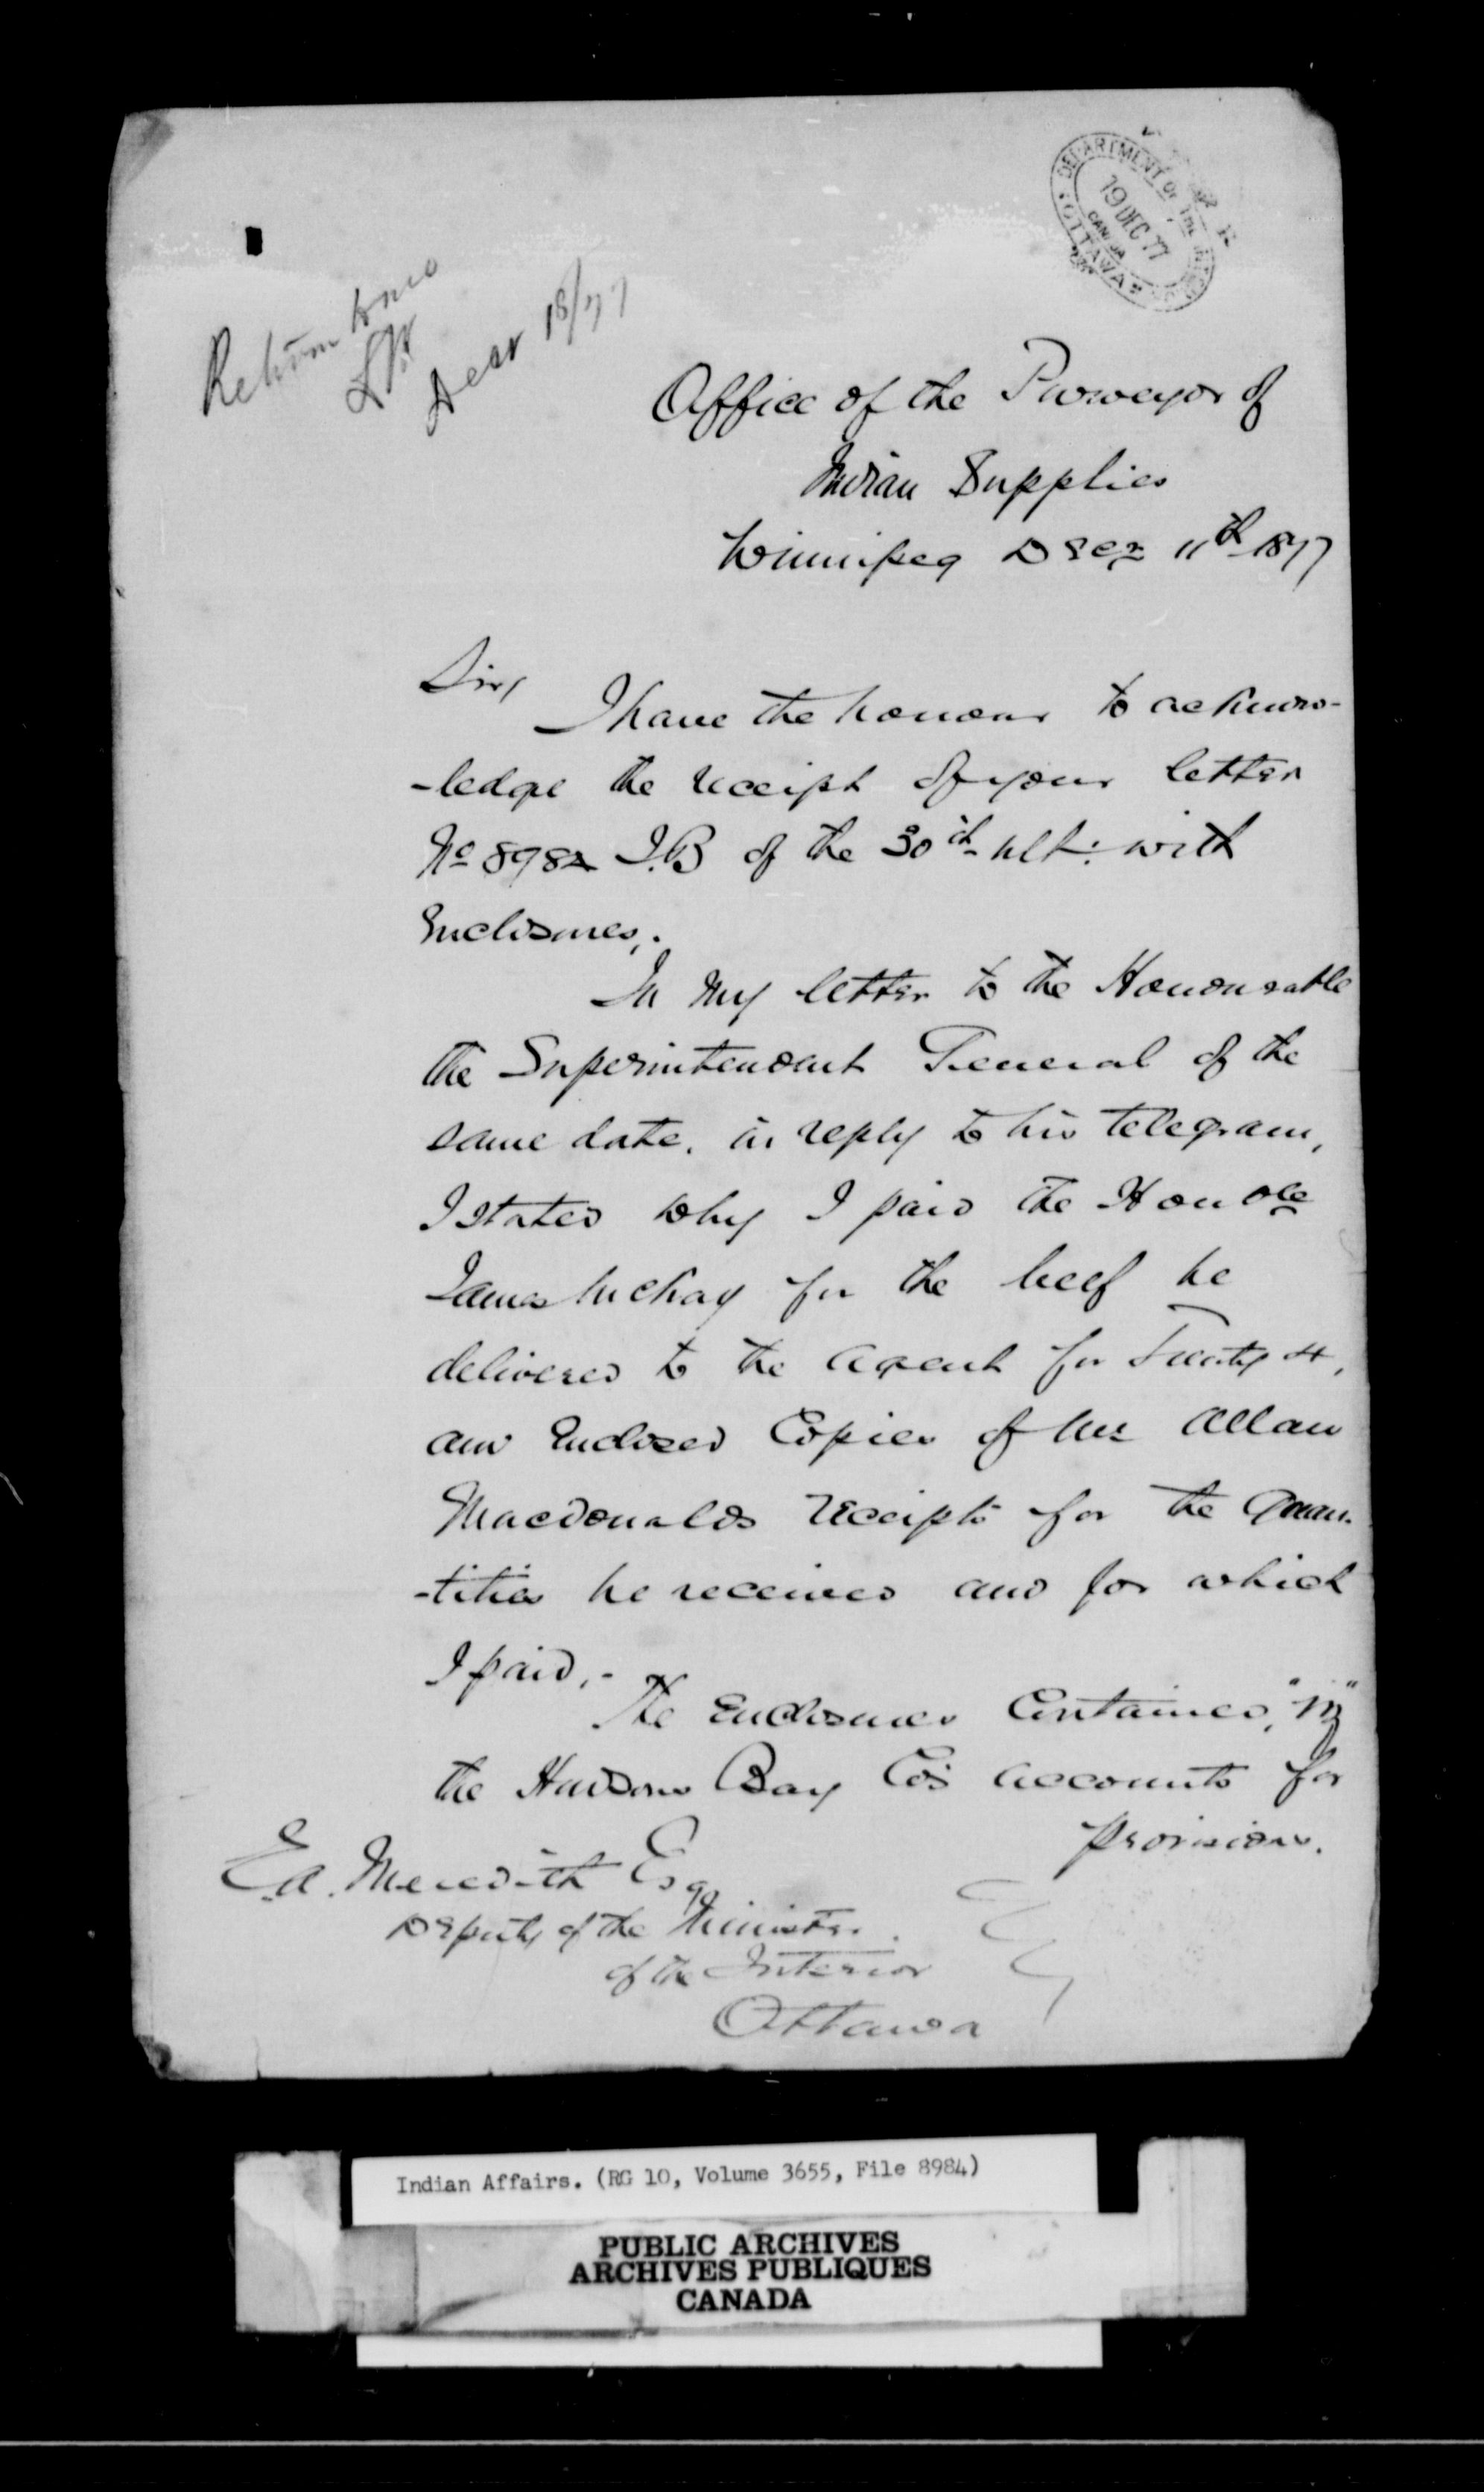 DEPARTMENT OF THE
19 DEC 77
CANADA
OTTAWA
Return
Decr 18/77
Office of the Purveyor of
Indian Supplies
Winnipeg Decr 11th 1877
Sir,
I have the honour to acknow-
-ledge the receipt of your letter
No 8982 I.B of the 30th ult: with
Enclosures.
In my letter to the Honourable
the Superintendent General of the
same date, in reply to his telegram,
I stated why I paid the Honble
James McKay for the beef he
delivered to the Agent for Treaty 4,
and Enclosed Copies of Mr Allan
Macdonalds receipts for the Quan-
-tities he received and for which
I paid,-
The Enclosures Contained,
the Hudsons Bay Co's accounts for
provisions.
E.A. Meredith Esq
Deputy of the Minister
of the Interior
Ottawa
Indian Affairs. (RG 10, Volume 3655, File 8984)
PUBLIC ARCHIVES
ARCHIVES PUBLIQUES
CANADA